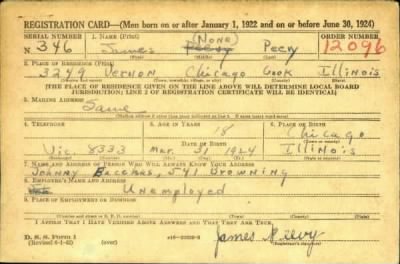 REGISTRATION CARD—(Men born on or after January 1, 1922 and on or before June 30, 1924)
SERIAL NUMBER 1. NAME (Print) ORDER NUMBER
N 346 James (None) Peevy 12096
2. PLACE OF RESIDENCE (Print)
3249 Vernon Chicago Cook Illinois
(Number and street) (Town, township, village, or city) (County) (State)
[THE PLACE OF RESIDENCE GIVEN ON THE LINE ABOVE WILL DETERMINE LOCAL BOARD
JURISDICTION; LINE 2 OF REGISTRATION CERTIFICATE WILL BE IDENTICAL]
3. MAILING ADDRESS
Same
[Mailing address if other than place indicated on line 2. If same insert word same]
4. TELEPHONE 5. AGE IN YEARS 6. PLACE OF BIRTH
18 Chicago
DATE OF BIRTH
Vic. 8333 Mar. 31 1924 Illinois
7. NAME AND ADDRESS OF PERSON WHO WILL ALWAYS KNOW YOUR ADDRESS
Johnny 541 Browning
8. EMPLOYER'S NAME AND ADDRESS
Unemployed
9. PLACE OF EMPLOYMENT OR BUSINESS
(Number and street or R. F. D. number) (Town) (County) (State)
I AFFIRM THAT I HAVE VERIFIED ABOVE ANSWERS AND THAT THEY ARE TRUE.
D. S. S. Form 1
(Revised 6-9-42) (over)
James Peevy
(Registrant's signature)